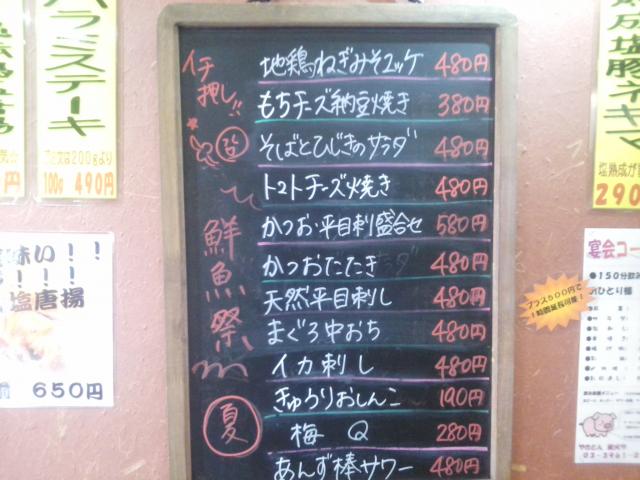 イチ押し!!
地鶏ねぎみそユッケ 480円
もちチーズ納豆焼き 380円
そばとひじきのサラダ 480円
トマトチーズ焼き 480円
鮮魚祭
かつお・平目刺盛合せ 580円
かつおたたき 480円
天然平目刺し 480円
まぐろ中おち 480円
イカ刺し 480円
夏
きゅうりおしんこ 190円
梅Q 280円
あんず棒サワー 480円
ハラミステーキ
100g 490円
味い!!
!!!
塩唐揚
650円
塩豚ネギマ
塩熟成が
290
宴会コー
●150分飲み
プラス500円で
1時間延長可能!